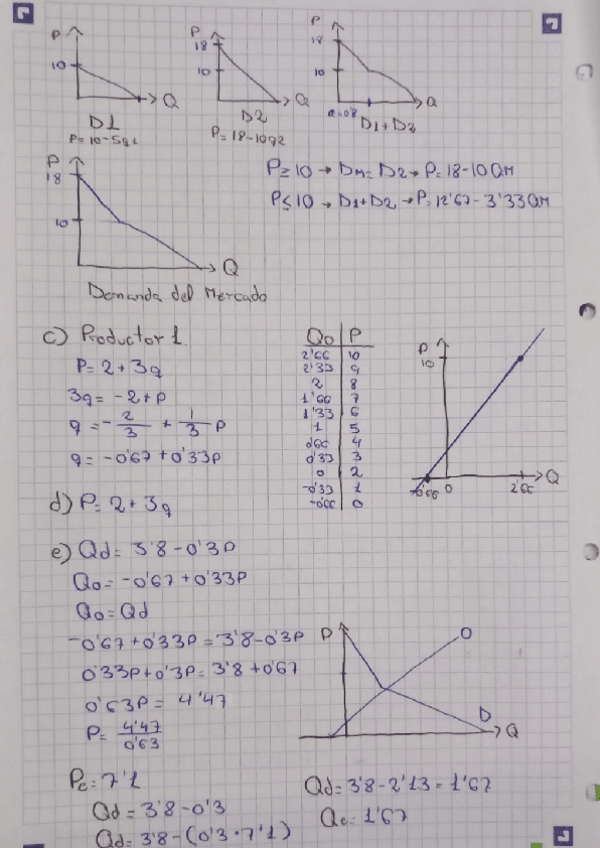 P
10
Q
D1
P=10-5q1
P
18
10
Q
D2
P=18-10q2
P
18
10
Q=0'8
Q
D1+D2
P
18
10
Q
Demanda del Mercado
P≥10 → DM=D2 → P=18-10QM
P≤10 → D1+D2 → P=12'67-3'33QM
c) Productor 1
P=2+3q
3q=-2+P
q=-2/3+1/3P
q=-0'67+0'33P
Qo P
2'66 10
2'33 9
2 8
1'66 7
1'33 6
1 5
0'66 4
0'33 3
0 2
-0'33 1
-0'66 0
P
10
-0'66 0 2'66 Q
d) P=2+3q
e) Qd=3'8-0'3P
Qo=-0'67+0'33P
Qo=Qd
-0'67+0'33P=3'8-0'3P
0'33P+0'3P=3'8+0'67
0'63P=4'47
P=4'47/0'63
Pe=7'1
Qd=3'8-0'3
Qd=3'8-(0'3·7'1)
P
O
D
Q
Qd=3'8-2'13=1'67
Qe=1'67